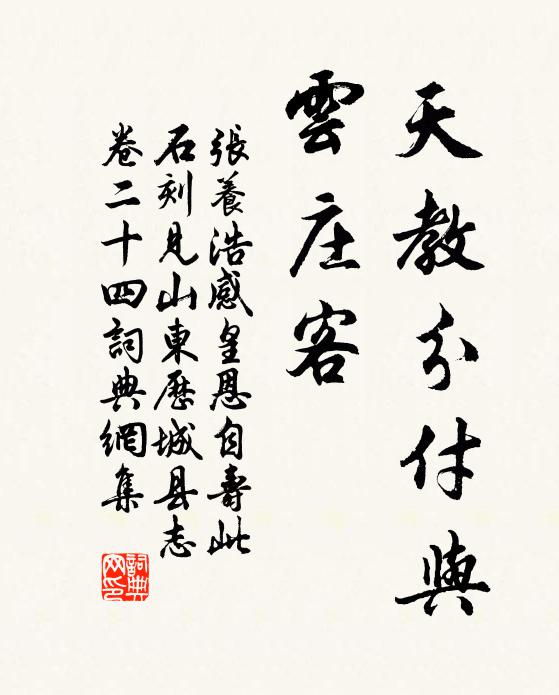 天教分付與
雲庄客
張養浩感皇恩自壽此
石刻見山東歷城县志
卷二十四詞典網集
詞典網印